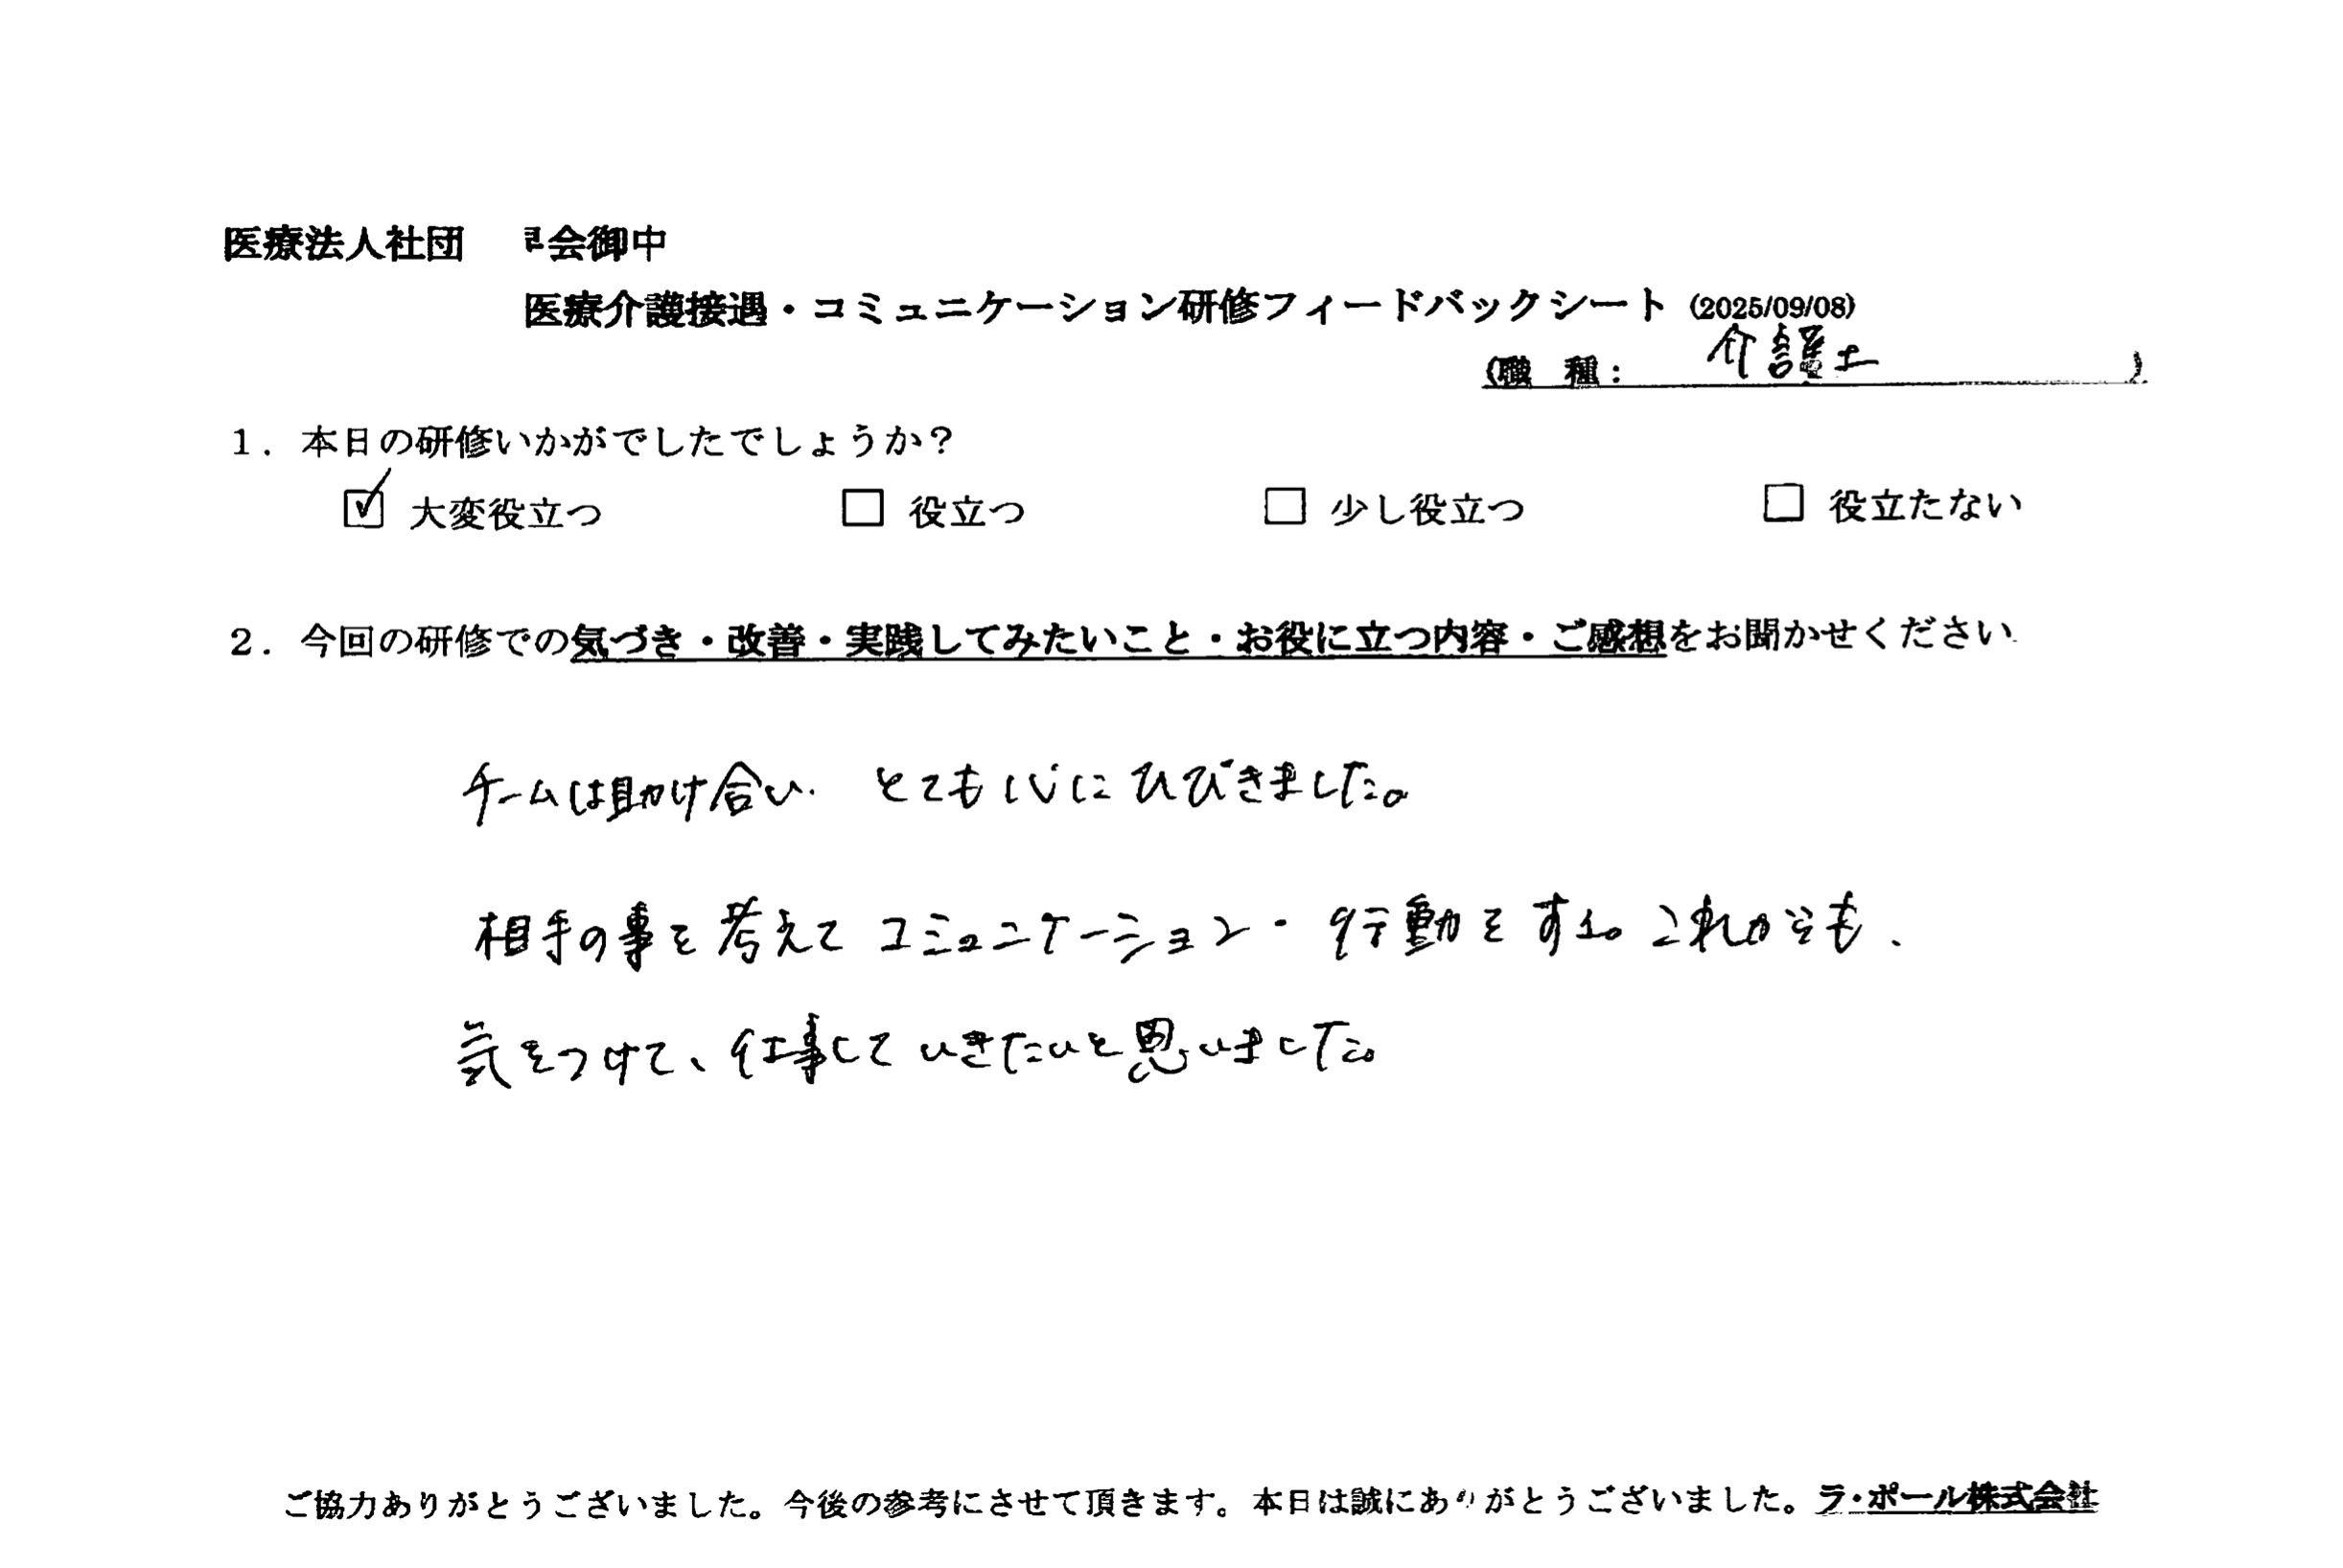 医療法人社団 会御中
医療介護接遇・コミュニケーション研修フィードバックシート (2025/09/08)
(職 種： 介護士 )
１．本日の研修いかがでしたでしょうか？
☑ 大変役立つ □ 役立つ □ 少し役立つ □ 役立たない
２．今回の研修での気づき・改善・実践してみたいこと・お役に立つ内容・ご感想をお聞かせください
チームは助け合い. とても心にひびきました。
相手の事を考えて コミュニケーション・行動をする。これからも、
気をつけて、仕事していきたいと思いました。
ご協力ありがとうございました。今後の参考にさせて頂きます。本日は誠にありがとうございました。ラ・ポール株式会社